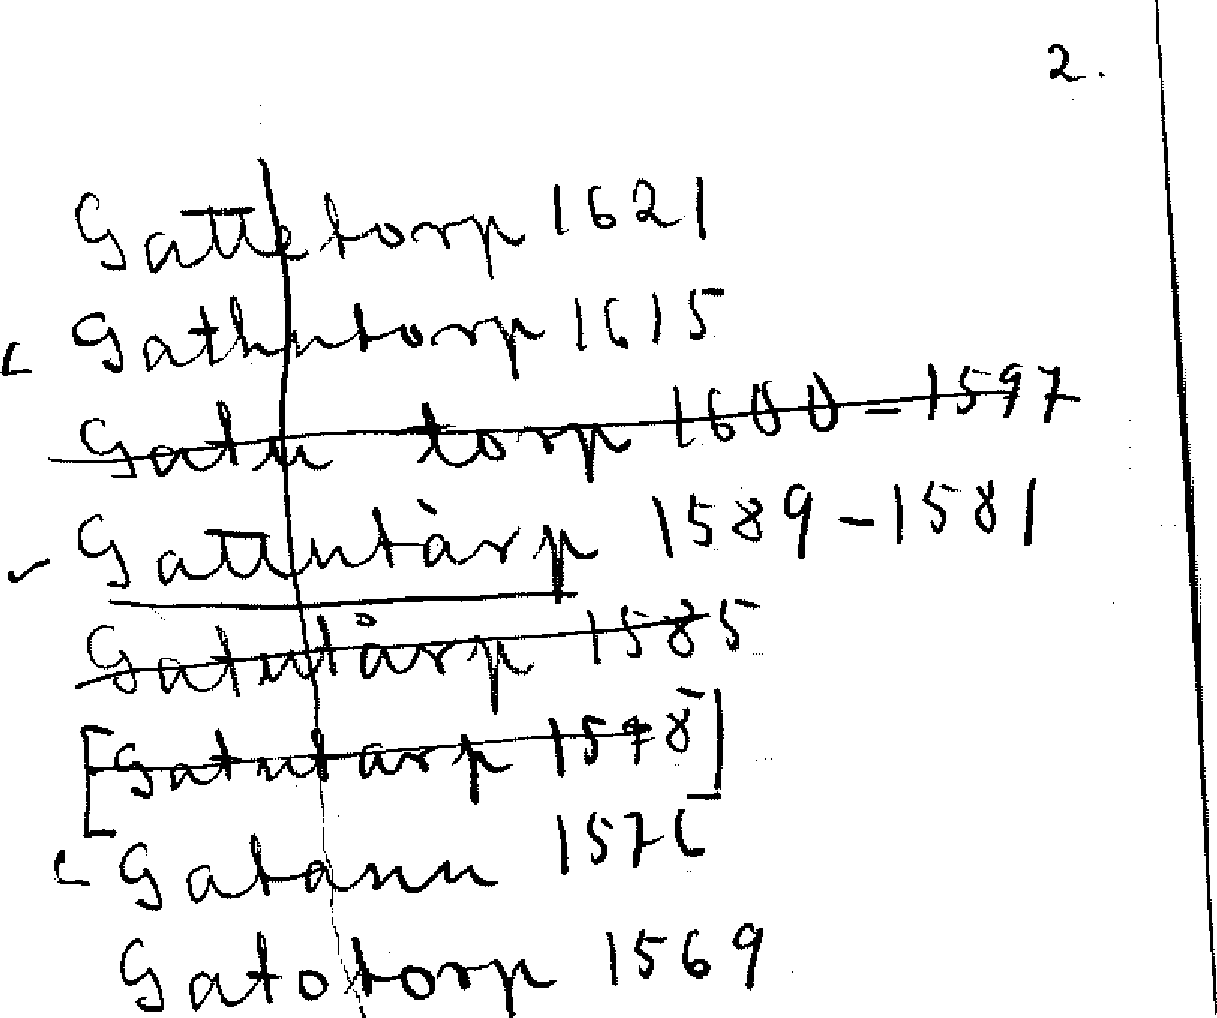 2.
Gattetorp 1621
Gathntorp 1615
Gatu torp 1600-1597
Gattutàrp 1589-1581
Gatutårp 1585
[Gatutarp 1578]
Gatann 1576
Gatotorp 1569